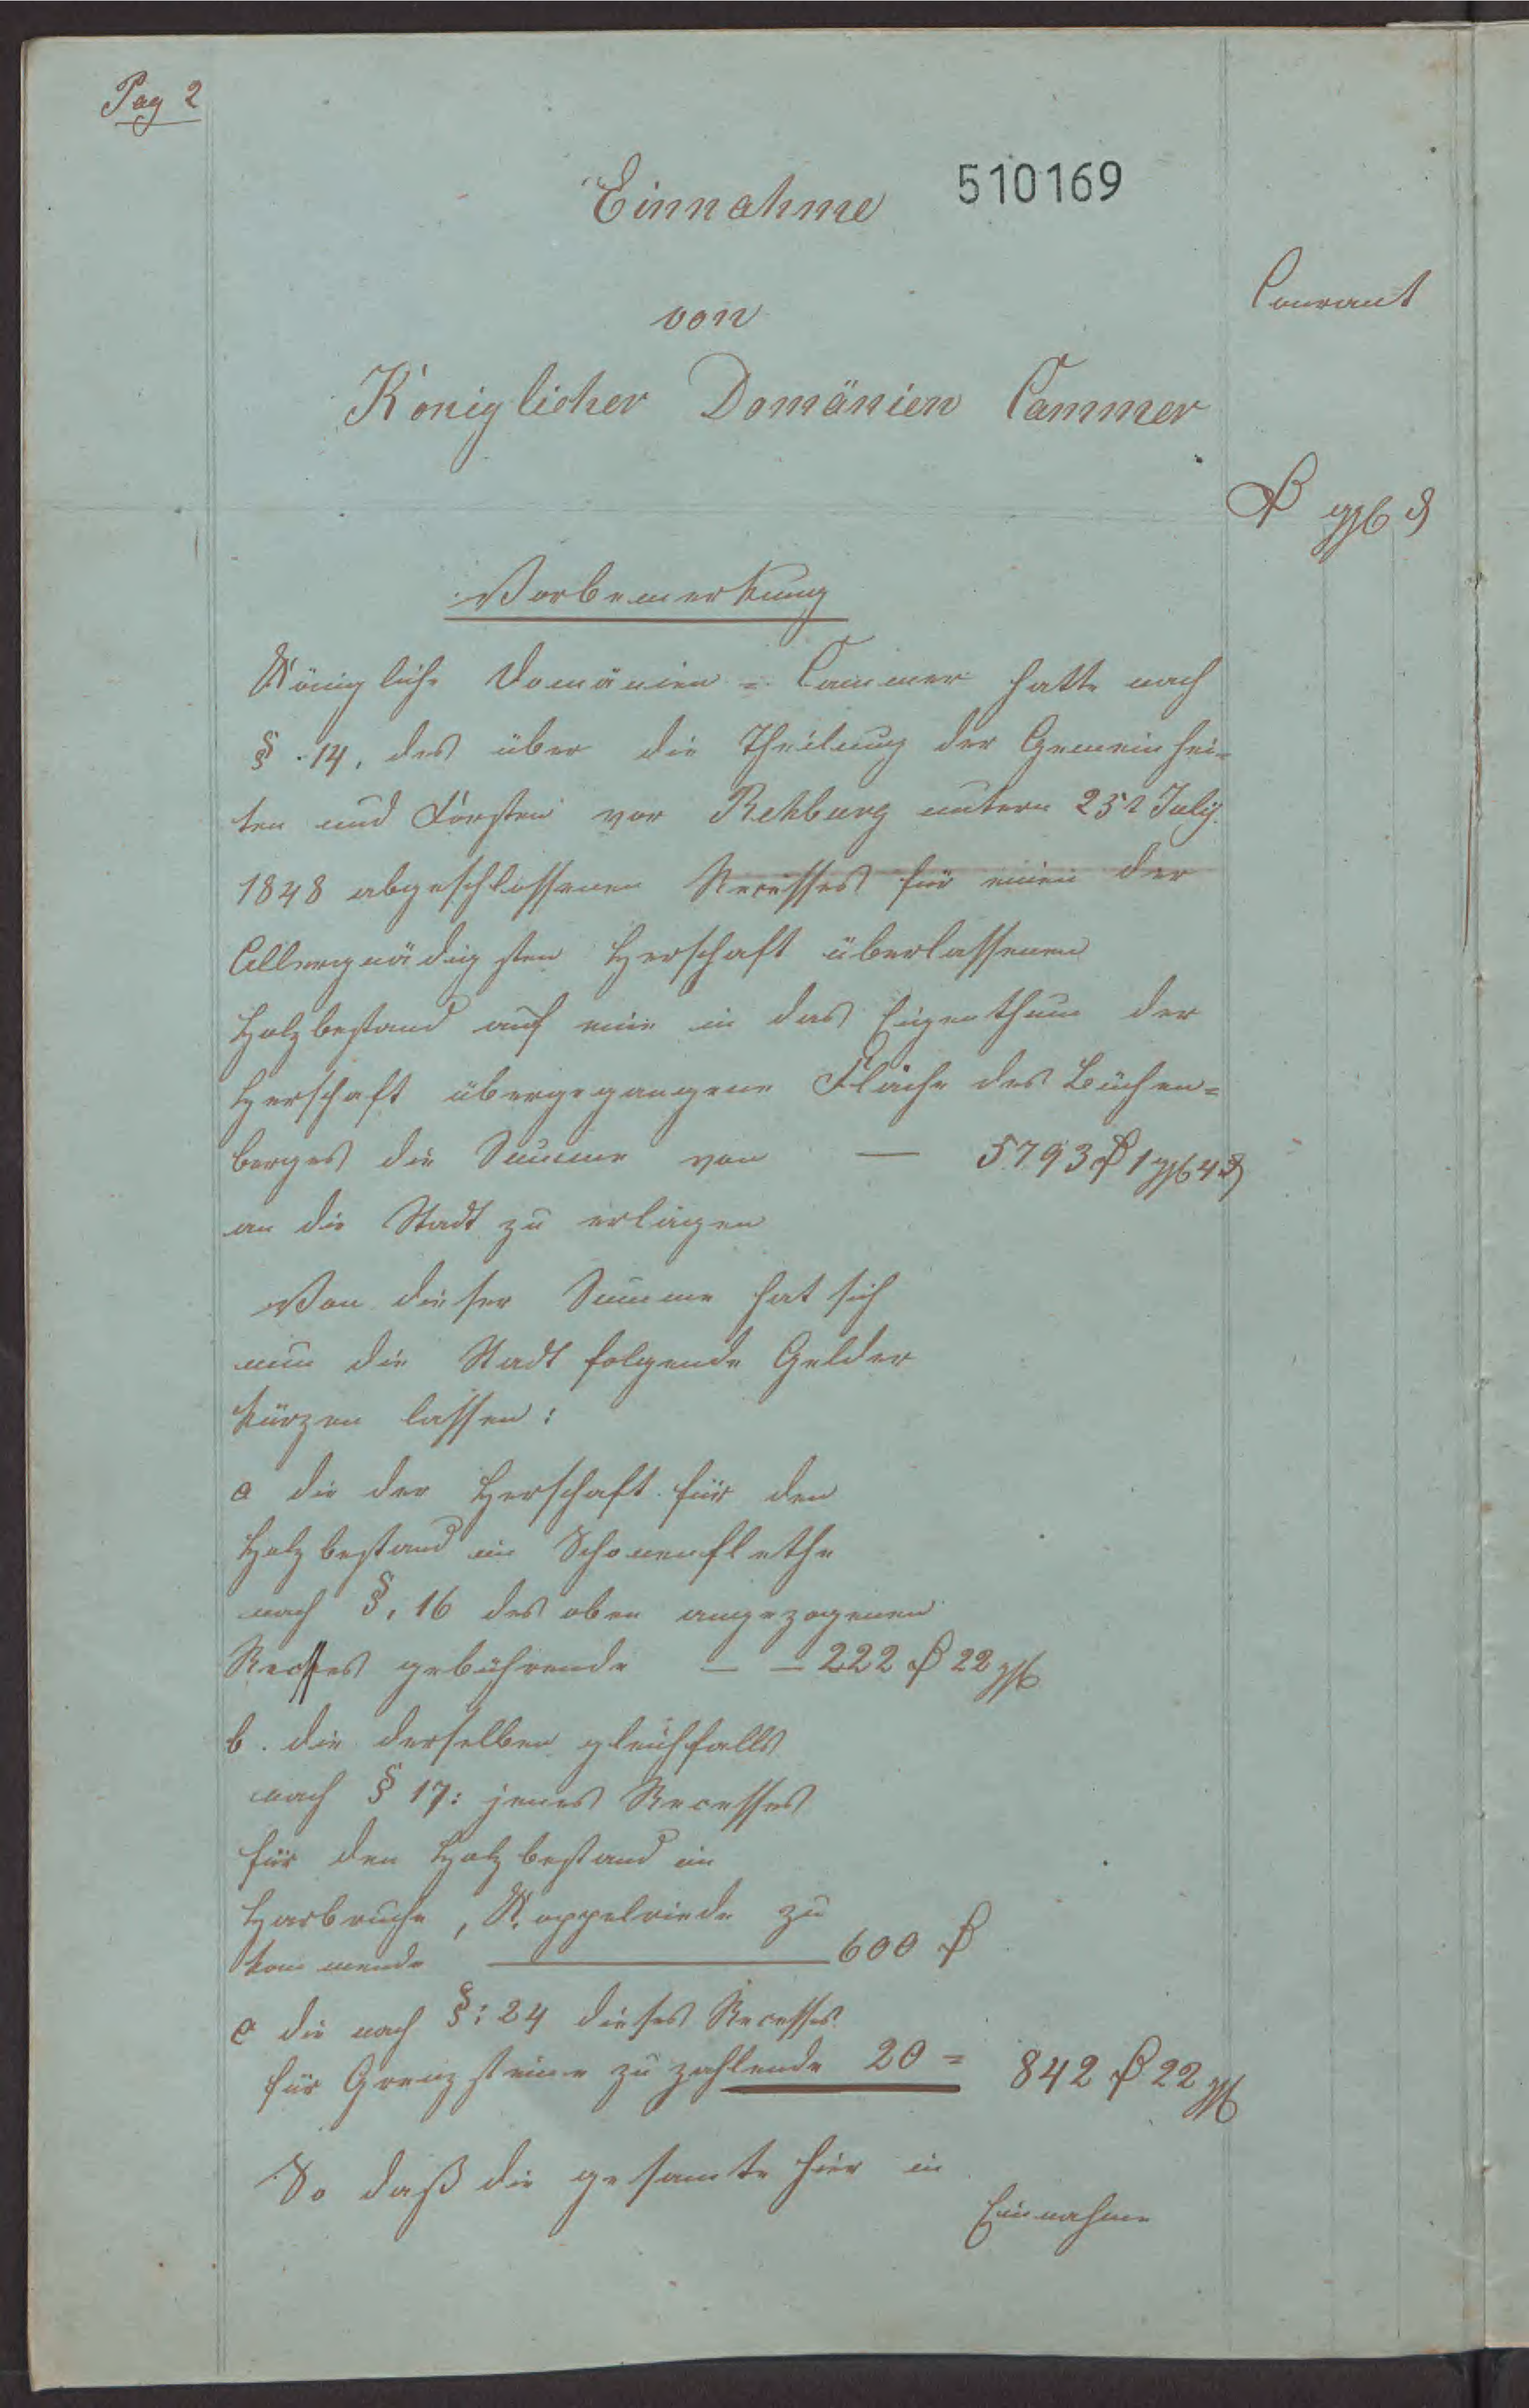 Pag 2
Einnahme 510169
Courant
von
Königlicher Domänien Cammer
₰ ggl ₰
Vorbemerkung
Königliche Domänien = Cammer hatte nach
§. 14, des über die Theilung der Gemeinhei-
ten und Forsten vor Rehburg unterm July
1848 abgeschlossenen Recesses für einen der
Allergnädigsten Herschaft überlassenen
Holzbestand auf eine in das Eigenthum der
Herschaft übergegangene Fläche des Büchen=
berges die Summe von — 5793 ₰ 1 ggl 4 ₰
an die Stadt zu erlegen
Von dieser Summe hat sich
nun die Stadt folgende Gelder
kürzen lassen:
a die der Herschaft für den
Holzbestand im Schonenflethe
nach §. 16 des oben angezogenen
Recesses gebührende — — 222 ₰ 22 ggl
b. die derselben gleichfalls
nach § 17: jenes Recesses
für den Holzbestand im
Harbruche, Koppelriede zu
kommende — 600 ₰
c die nach §: 24 dieses Recesses
für Grenzsteine zu zahlende 20 = 842 ₰ 22 ggl
So daß die gesamte hier in
Einnahme